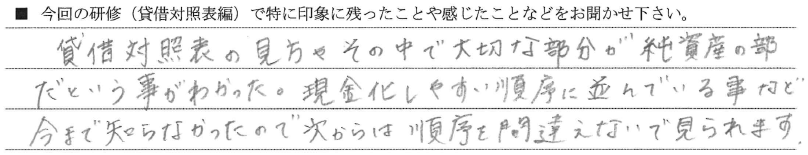 ■ 今回の研修（貸借対照表編）で特に印象に残ったことや感じたことなどをお聞かせ下さい。
貸借対照表の見方やその中で大切な部分が純資産の部
だという事がわかった。現金化しやすい順序に並んでいる事など
今まで知らなかったので次からは順序を間違えないで見られます。